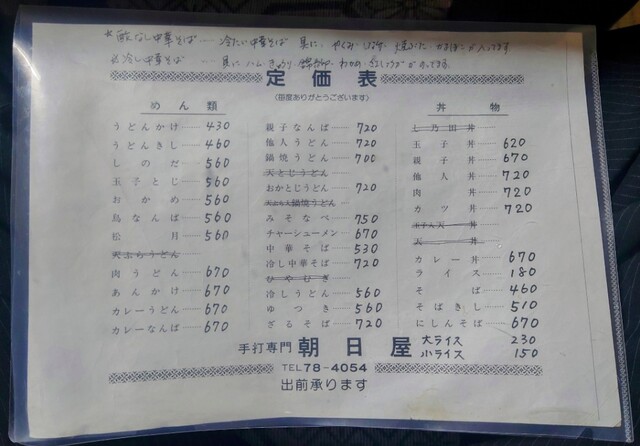 ※酢なし中華そば…… 冷たい中華そば 具に、やくみ、しょうゆ、焼ぶた、かまぼこが入ってます
※冷し中華そば…… 具にハム きゅうり 錦糸卵 わかめ 紅しょうがが入ってます
定価表
（毎度ありがとうございます）
めん類
うどんかけ 430
うどんきし 460
しのだ 560
玉子とじ 560
おかめ 560
鳥なんば 560
松月 560
天ぷらうどん
肉うどん 670
あんかけ 670
カレーうどん 670
カレーなんば 670
親子なんば 720
他人うどん 720
鍋焼うどん 700
天とじうどん
おかとじうどん 720
天ぷら入鍋焼うどん
みそなべ 750
チャーシューメン 670
中華そば 530
冷し中華そば 720
ひやむぎ
冷しうどん 560
ゆつき 560
ざるそば 720
丼物
し乃田丼
玉子丼 620
親子丼 670
他人丼 720
肉丼 720
カツ丼 720
天丼
カレー丼 670
ライス 180
そば 460
そばきし 510
にしんそば 670
大ライス 230
小ライス 150
手打専門 朝日屋
TEL 78-4054
出前承ります